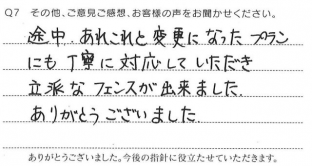 Q7 その他、ご意見ご感想、お客様の声をお聞かせください。
途中 あれこれと変更になったプラン
にも丁寧に対応していただき
立派なフェンスが出来ました.
ありがとうございました.
ありがとうございました。今後の指針に役立たせていただきます。